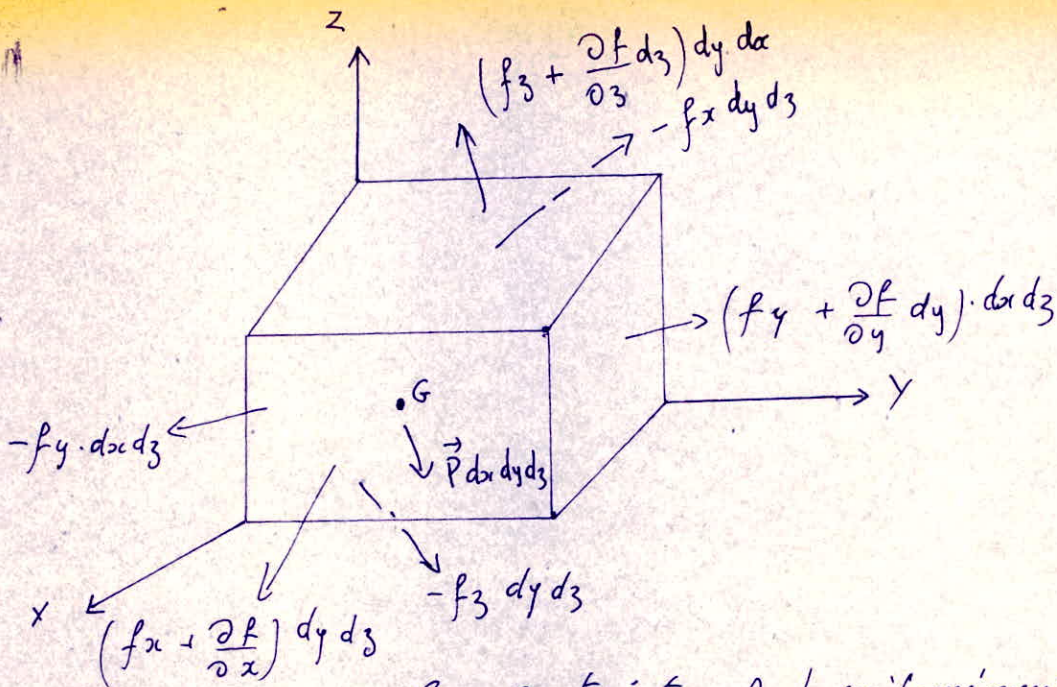 Z
(fz + ∂f/∂z dz) dy.dx
-fx dy dz
(fy + ∂f/∂y dy).dx dz
Y
G
-fy.dx dz
P⃗ dx dy dz
-fz dy dz
X
(fx + ∂f/∂x) dy dz